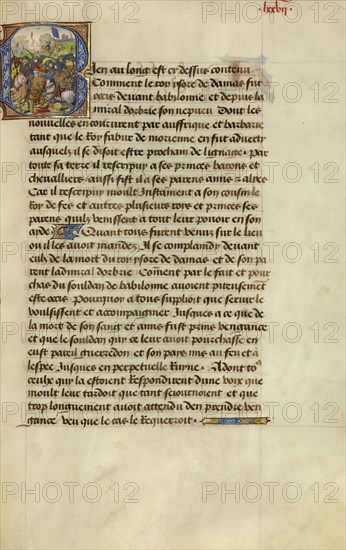 lxxvii
Bien au long est cy dessus contenu
Comment le roy ysore de damas fut
occis deuant babilonne et depuis la
miral dorbrie son nepueu Dont les
nouuelles en coururent par auffrique et barbarie
tant que le Roy fabur de morienne en fut aduerty
ausquelz il se disoit estre prochain de lignage · par
toute sa terre il rescripuy a ses princes barons et
cheualliers aussi fist il a ses parens amis
Car il rescripuy moult Instament a son cousin le
Roy de fes et autres plusieurs roys et princes ses
parens quilz venissent a tout leur pouoir en son
ayde Quant tous furent venus sur le lieu
ou il les auoit mandez Il se complaindy deuant
eulx de la mort du roy ysore de damas et de son pa
rent ladmiral dorbrie Coment par le fait et pour
chas du souldan de babilonne auoient piteusement
este occis Pourquoy a tous supplioit que secourir le
voulsissent et accompaignier Jusques a ce que de
la mort de son sang et amis fust prinse vengance
et que le souldan qui ce leur auoit pourchasse en
eust pareil guerredon et son pays mis au feu et a
lespee Jusques en perpetuelle Ruyne · Adont to9
ceulx qui la estoient Respondirent dune voix que
moult leur tardoit que tant seiournoient et que
trop longuement auoit attendu den prendre ven
gance veu que le cas le Requeroit ·